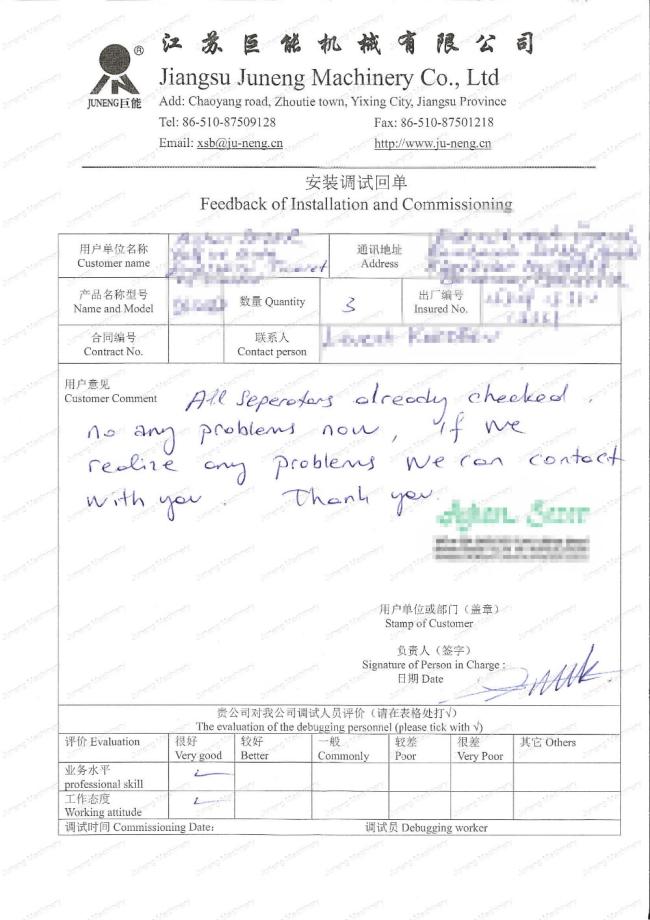 江苏巨能机械有限公司
®
JUNENG巨能
Jiangsu Juneng Machinery Co., Ltd
Add: Chaoyang road, Zhoutie town, Yixing City, Jiangsu Province
Tel: 86-510-87509128 Fax: 86-510-87501218
Email: xsb@ju-neng.cn http://www.ju-neng.cn
安装调试回单
Feedback of Installation and Commissioning
用户单位名称 通讯地址
Customer name Address
产品名称型号 数量 Quantity 3 出厂编号
Name and Model Insured No.
合同编号 联系人
Contract No. Contact person
用户意见
Customer Comment All seperators already checked.
no any problems now, if we
realize any problems we can contact
with you. Thank you.
用户单位或部门（盖章）
Stamp of Customer
负责人（签字）
Signature of Person in Charge :
日期 Date
贵公司对我公司调试人员评价（请在表格处打√）
The evaluation of the debugging personnel (please tick with √)
评价 Evaluation 很好 较好 一般 较差 很差 其它 Others
Very good Better Commonly Poor Very Poor
业务水平
professional skill
工作态度
Working attitude
调试时间 Commissioning Date: 调试员 Debugging worker
Juneng Machinery